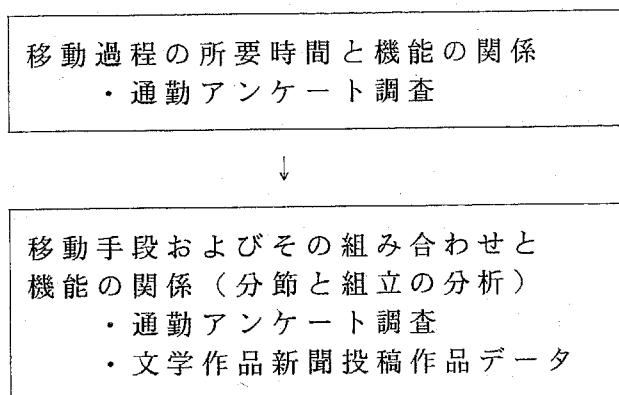 移動過程の所要時間と機能の関係
・通勤アンケート調査
↓
移動手段およびその組み合わせと
機能の関係(分節と組立の分析)
・通勤アンケート調査
・文学作品新聞投稿作品データ